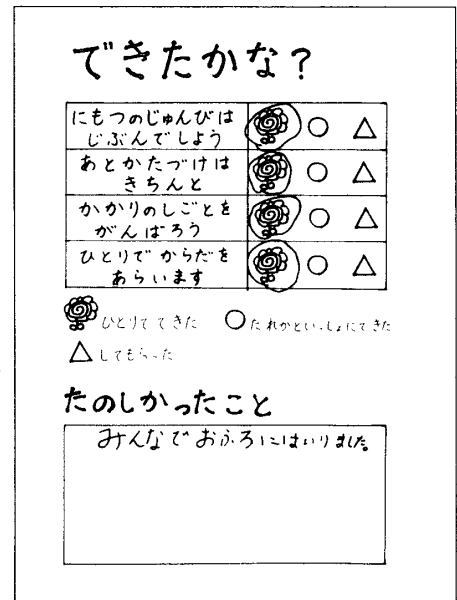 できたかな？
にもつのじゅんびは
じぶんでしよう
○ △
あとかたづけは
きちんと
○ △
かかりのしごとを
がんばろう
○ △
ひとりでからだを
あらいます
○ △
ひとりでできた ○だれかといっしょにできた
△してもらった
たのしかったこと
みんなでおふろにはいりました。